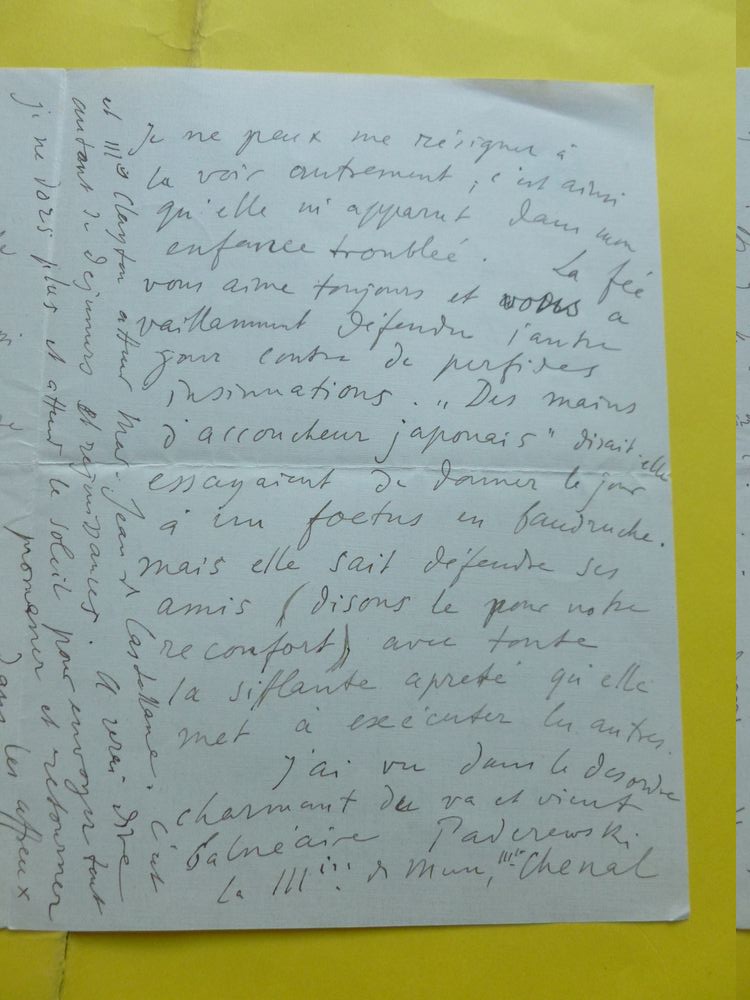 Je ne peux me résigner à
la voir autrement ; c'est ainsi
qu'elle m'apparut dans mon
enfance troubleé. La feé
vous aime toujours et vous a
vaillamment défendu l'autre
jour contre de perfides
insinuations. "Des mains
d'accoucheur japonais" disait-elle
essayaient de donner le jour
à un foetus en baudruche.
mais elle sait défendre ses
amis (disons le pour notre
reconfort) avec toute
la siflante apreté qu'elle
met à exécuter les autres.
J'ai vu dans le desordre
charmant du va et vient
balnéaire Paderewski
la Mise de Mun, Mlle Chenal
et Me Clayton attend Mad. Jean de Castellane. C'est
autant de dejeuners et rejouissances. A vrai dire
je ne dors plus et attend le soleil pour envoyer tout
promener et retourner
dans les affreux